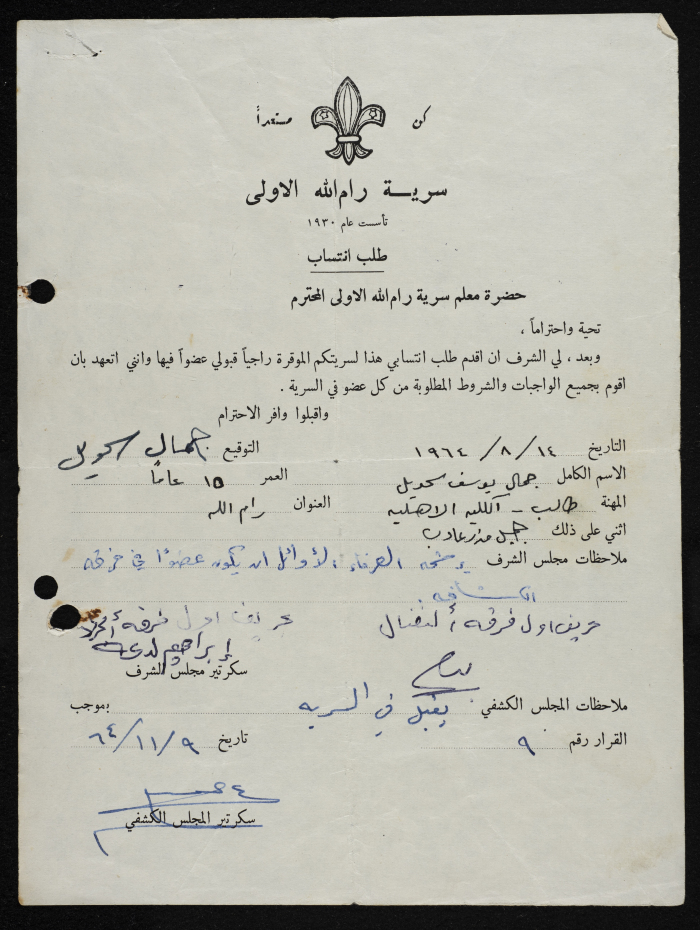 كن مستعداً
سريـــة رام الله الاولى
تأسست عام ١٩٣٠
طلب انتساب
حضرة معلم سرية رام الله الاولى المحترم
تحية واحتراماً ،
وبعد ، لي الشرف ان اقدم طلب انتسابي هذا لسريتكم الموقرة راجياً قبولي عضواً فيها وانني اتعهد بان
اقوم بجميع الواجبات والشروط المطلوبة من كل عضو في السرية .
واقبلوا وافر الاحترام
التاريخ ١٤ / ٨ / ١٩٦٤ التوقيع جمال
الاسم الكامل جمال يوسف العمر ١٥ عاماً
المهنة طالب - الكلية الاهلية العنوان رام الله
اثني على ذلك جميل
ملاحظات مجلس الشرف يرشحه العرفاء الأوائل ان يكون عضوًا في فرقة
الكشافه .
عريف اول فرقة عريف اول فرقة
إبراهيم
سكرتير مجلس الشرف
ملاحظات المجلس الكشفي يقبل في السريه بموجب
القرار رقم ٩ تاريخ ٩ / ١١ / ٦٤
سكرتير المجلس الكشفي